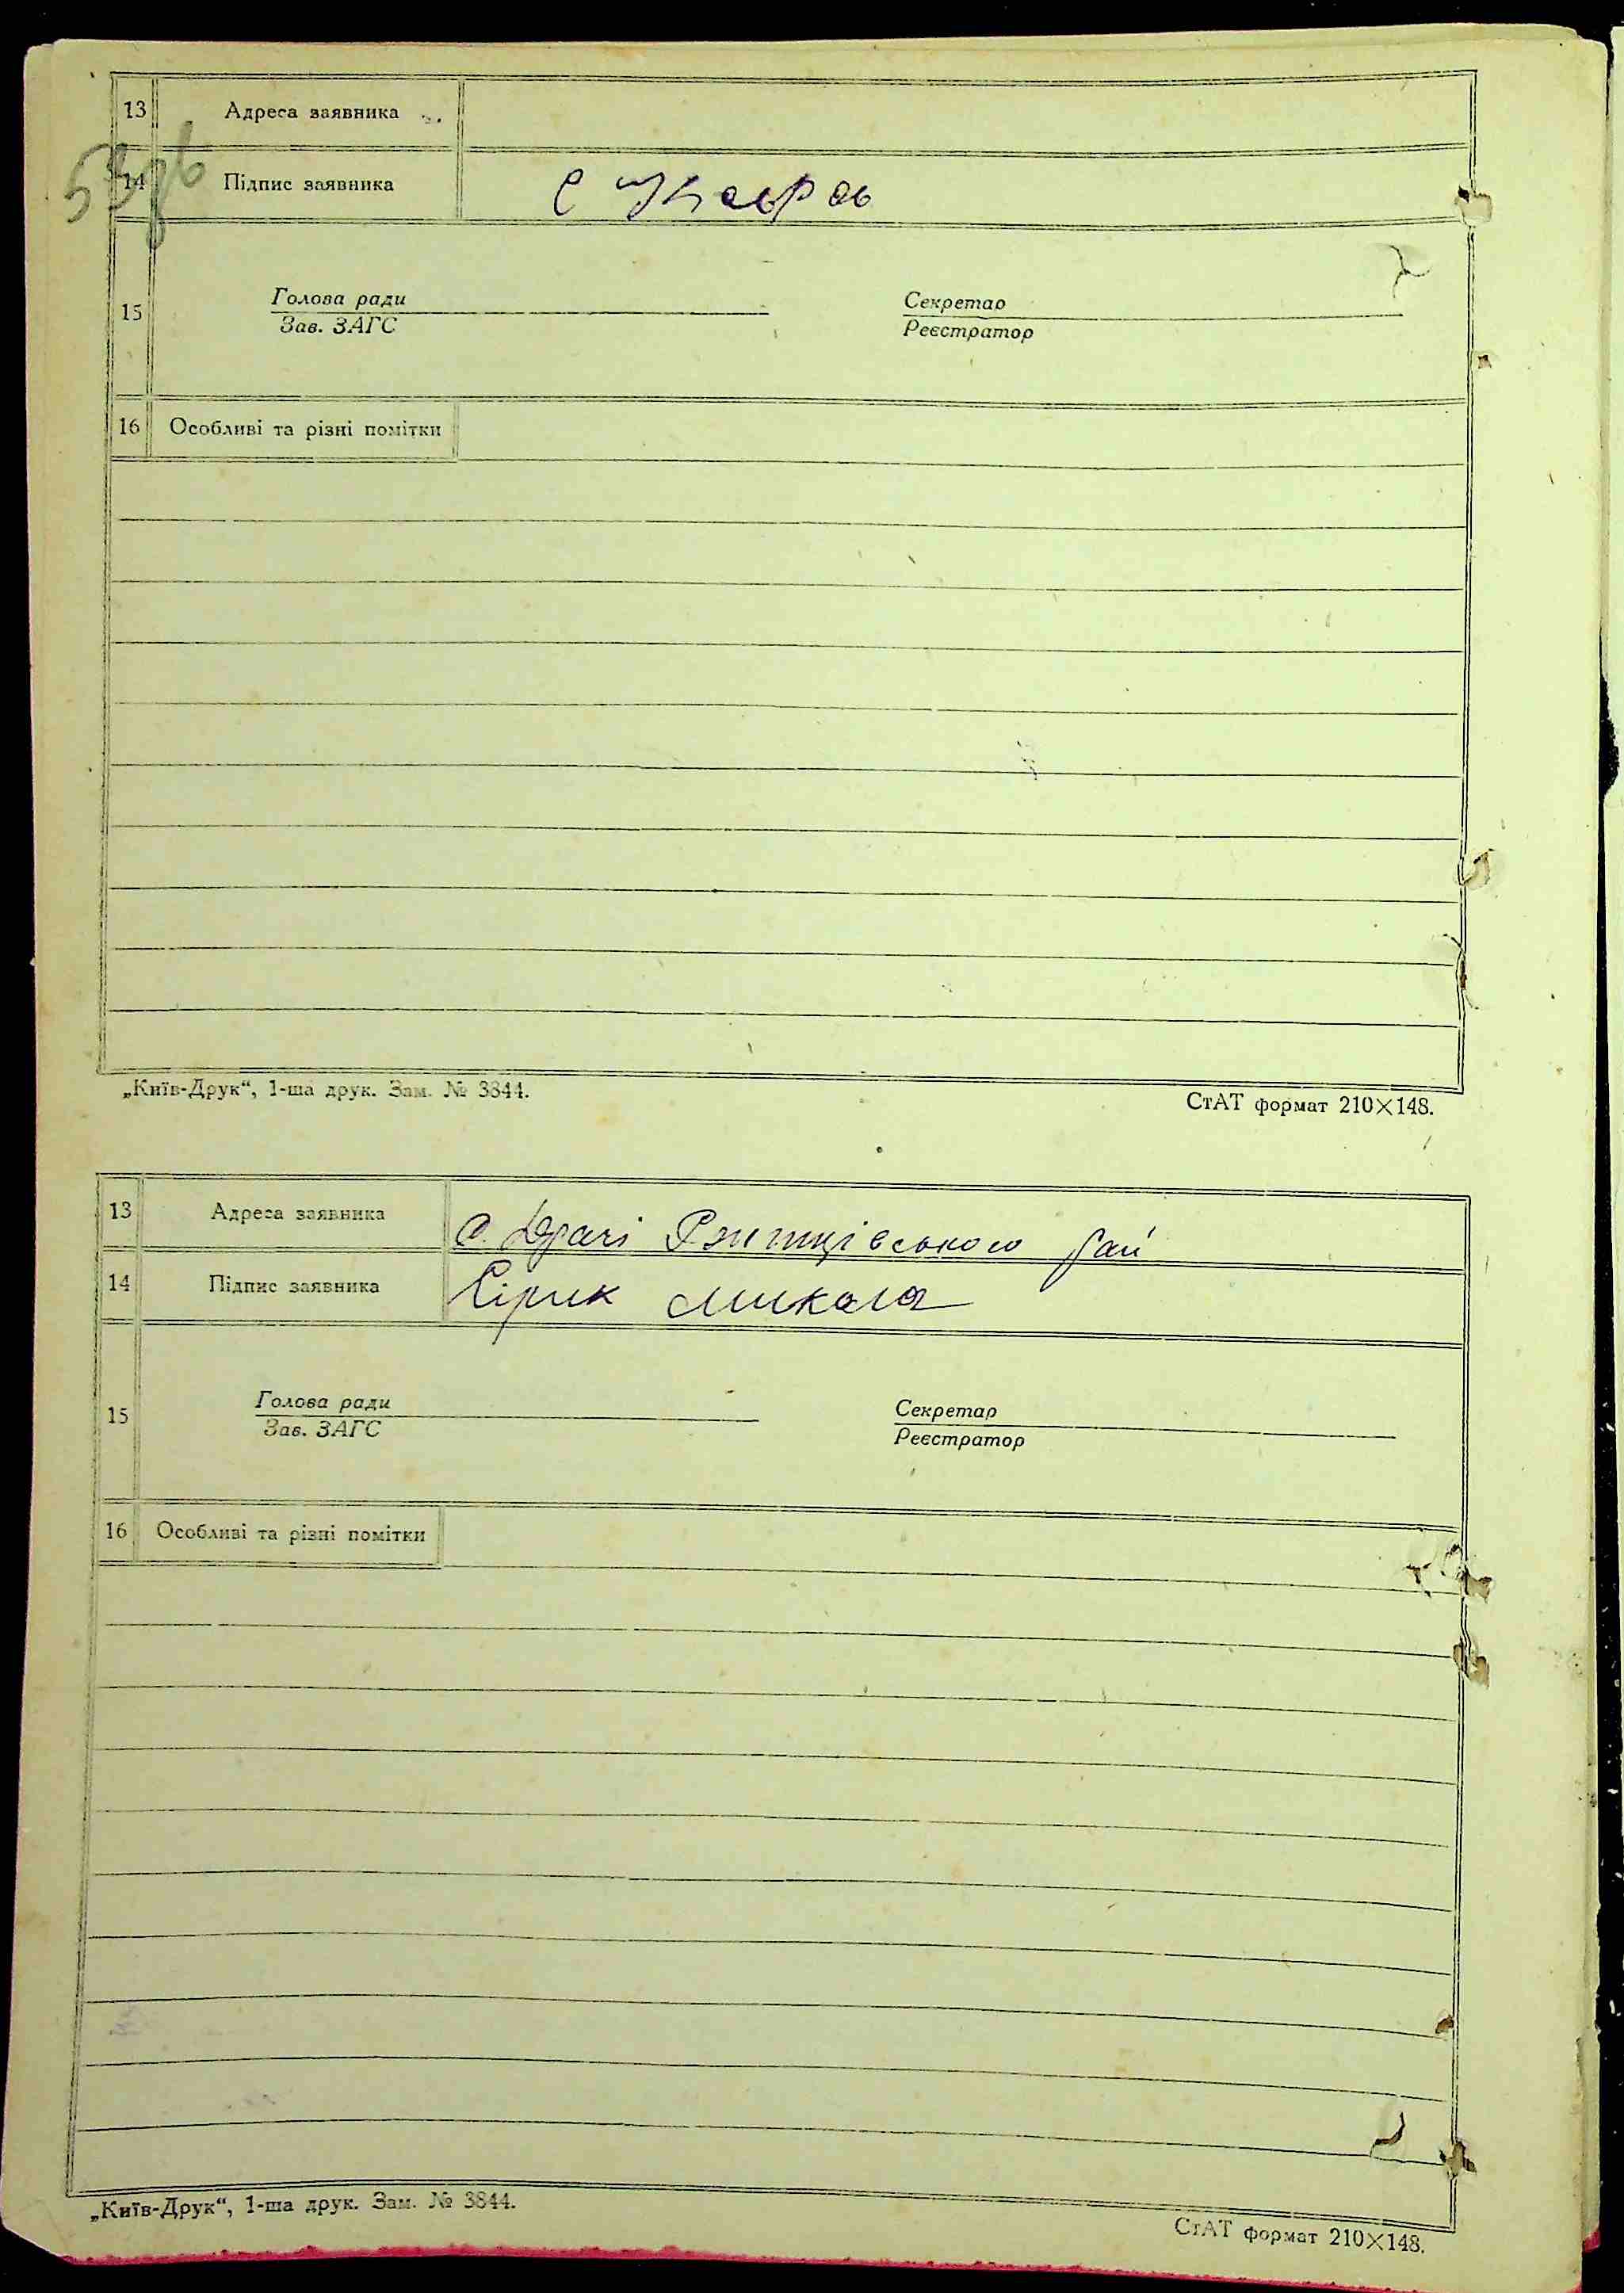 13 Адреса заявника
14 Підпис заявника
15 Голова ради Секретар
Зав. ЗАГС Реєстратор
16 Особливі та різні помітки
„Київ-Друк“, 1-ша друк. Зам. № 3844.
СтАТ формат 210×148.
13 Адреса заявника с. Ржищівського рай
14 Підпис заявника Сірик Микола
15 Голова ради Секретар
Зав. ЗАГС Реєстратор
16 Особливі та різні помітки
„Київ-Друк“, 1-ша друк. Зам. № 3844.
СтАТ формат 210×148.